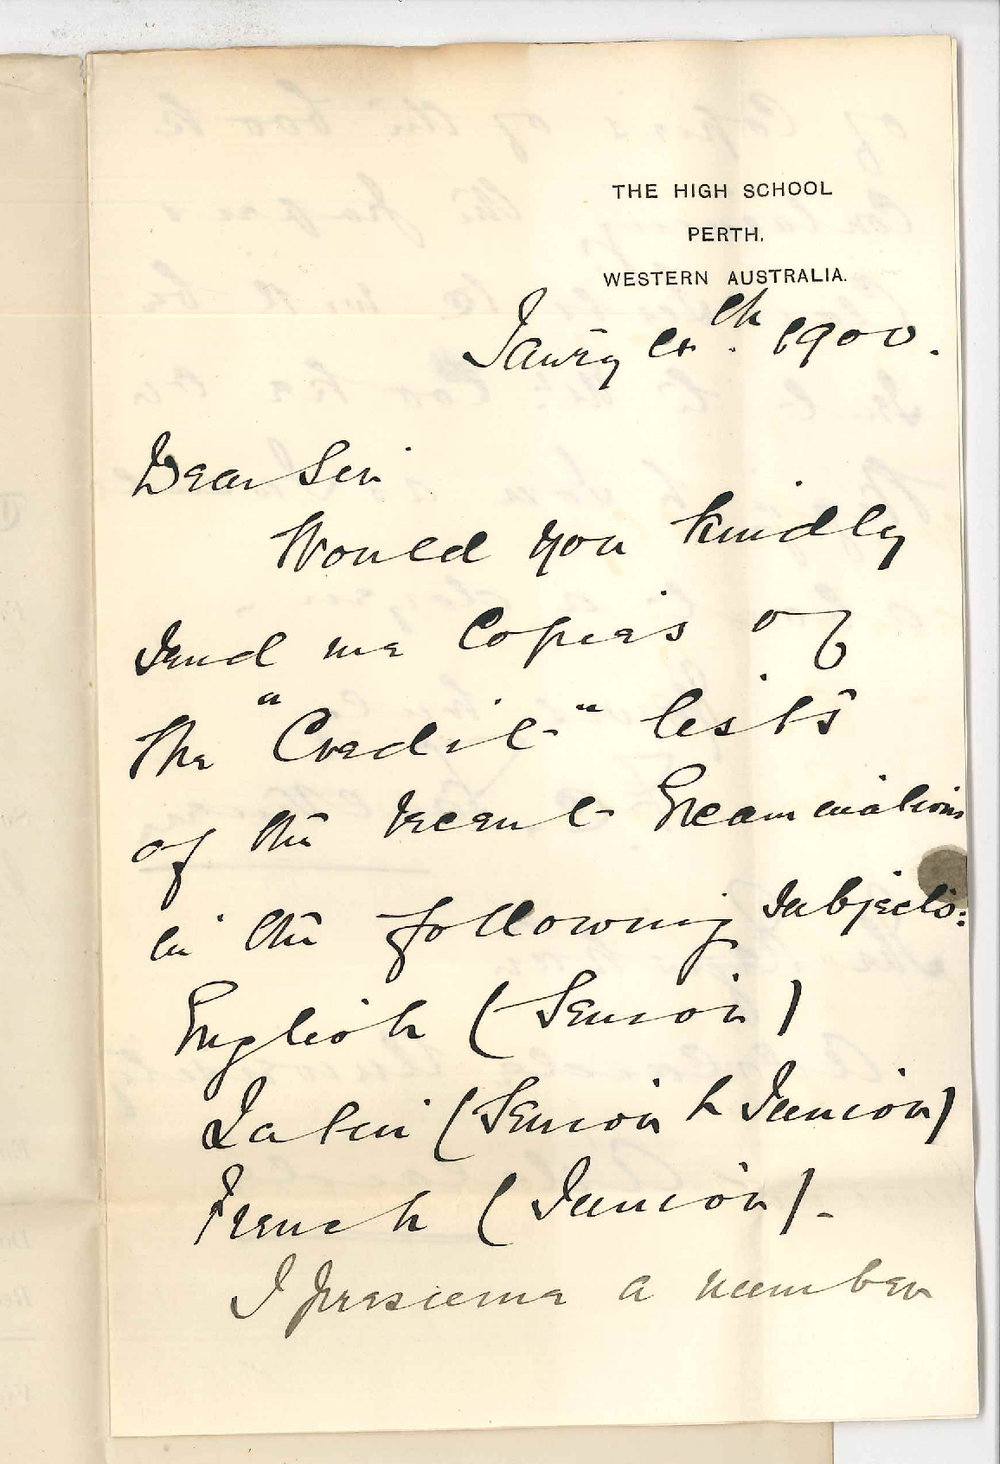 THE HIGH SCHOOL
PERTH.
WESTERN AUSTRALIA.
Janry 4th. 1900.
Dear Sir
Would you kindly
send me Copies of
the "Credit" lists
of the recent Examinations
in the following subjects:
English (Senior)
Latin (Senior & Junior)
French (Junior).
I presume a number